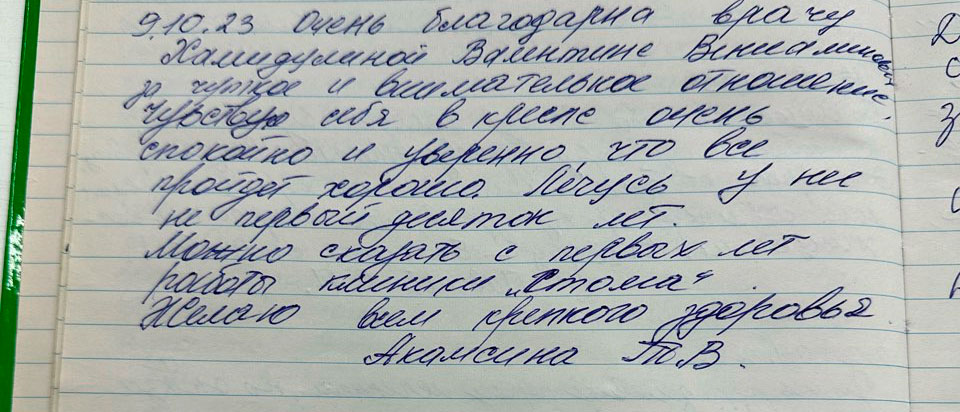 9.10.23 Очень благодарна врачу
Хамидулиной Валентине Вениаминовне
за чуткое и внимательное отношение.
Чувствую себя в кресле очень
спокойно и уверенно, что все
пройдет хорошо. Лечусь у нее
не первый десяток лет.
Можно сказать с первых лет
работы клиники „Стома“
Желаю всем крепкого здоровья
Т.В.